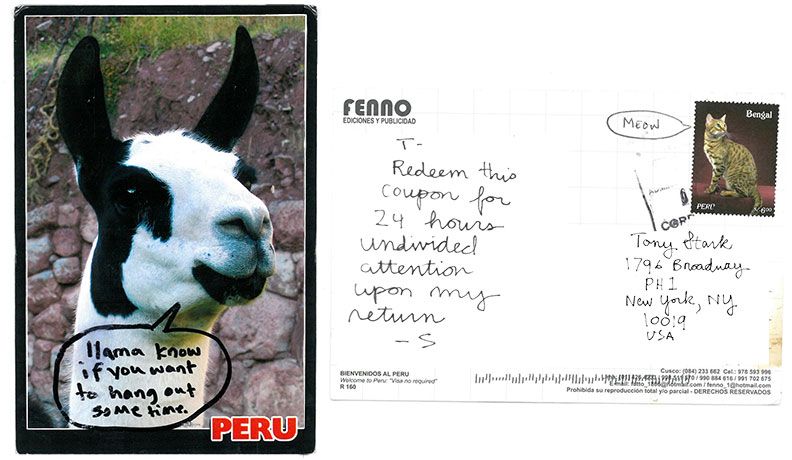 llama know
if you want
to hang out
some time.
PERU
FENNO
EDICIONES Y PUBLICIDAD
MEOW
Bengal
PERU
S/. 6.00
T-
Redeem this
coupon for
24 hours
undivided
attention
upon my
return
- S
Tony Stark
1796 Broadway
PH 1
New York, NY
10019
USA
BIENVENIDOS AL PERU
Welcome to Peru: "Visa no required"
R 160
Cusco: (084) 233 682 Cel: 976 593 996
990 884 616 / 991 702 675
fenno_1@hotmail.com
Prohibida su reproducción total y/o parcial - DERECHOS RESERVADOS